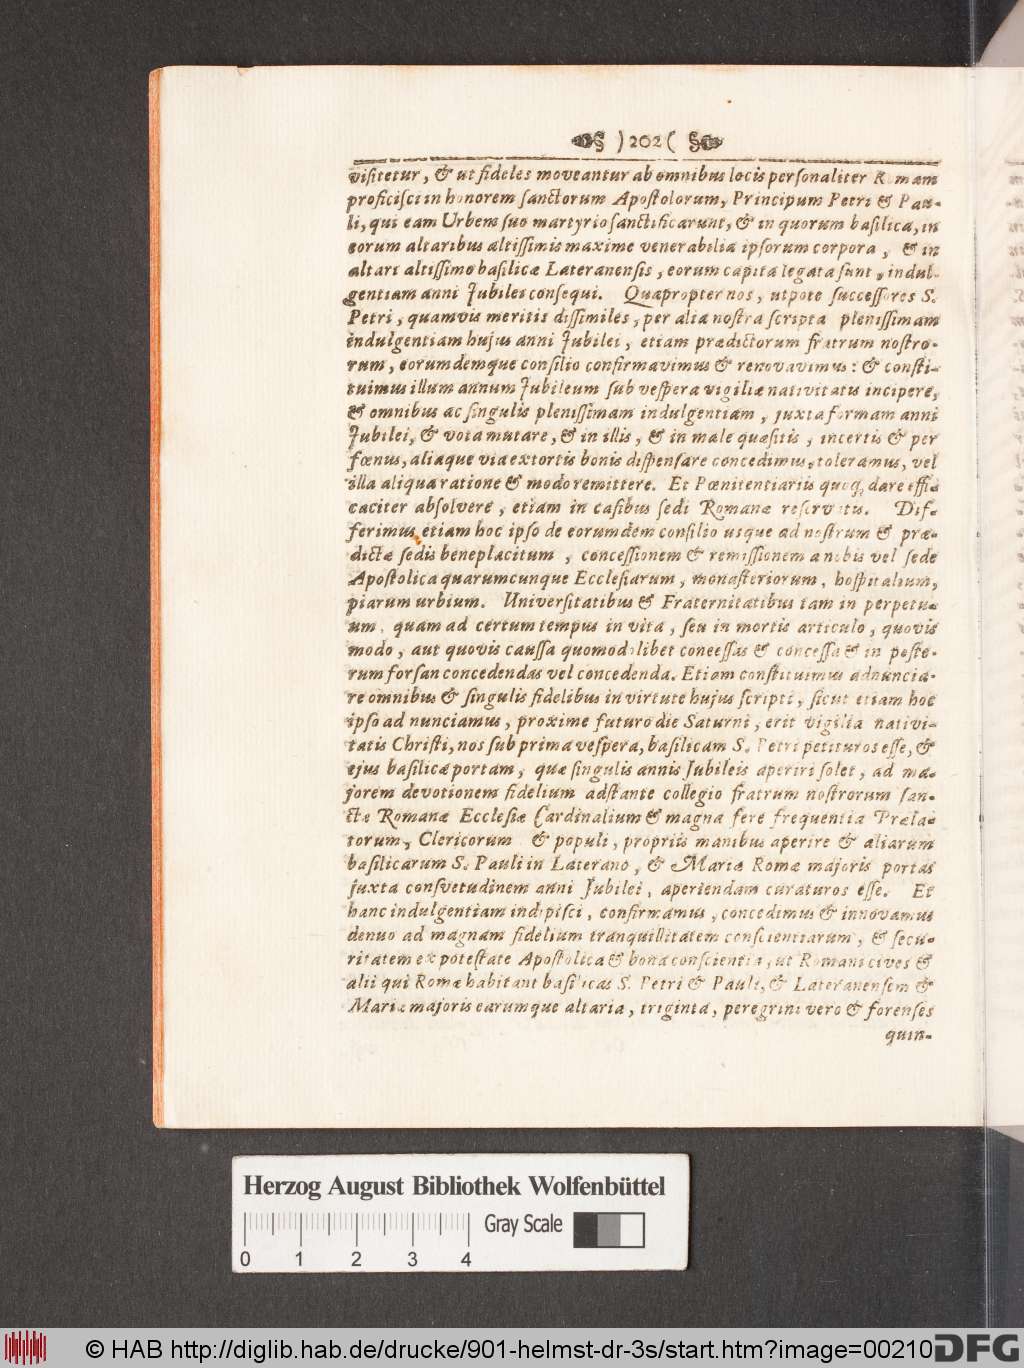 § ) 202 ( §
visitetur, & ut fideles moveantur ab omnibus locis personaliter Romam
proficisci in honorem sanctorum Apostolorum, Principum Petri & Pau-
li, qui eam Urbem suo martyrio sanctificarunt, & in quorum basilica, in
eorum altaribus altissimis maxime venerabilia ipsorum corpora, & in
altari altissimo basilicæ Lateranensis, eorum capita legata sunt, indul-
gentiam anni Jubilei consequi. Quapropter nos, utpote successores S.
Petri, quamvis meritis dissimiles, per alia nostra scripta plenissimam
indulgentiam hujus anni Jubilei, etiam prædictorum fratrum nostro-
rum, eorumdemque consilio confirmavimus & renovavimus: & consti-
tuimus illum annum Jubileum sub vespera vigiliæ nativitatis incipere,
& omnibus ac singulis plenissimam indulgentiam, juxta formam anni
Jubilei, & vota mutare, & in illis, & in male quæsitis, incertis & per
fœnus, aliaque via extortis bonis dispensare concedimus, toleramus, vel
illa aliqua ratione & modo remittere. Et Pœnitentiariis quoq; dare effi-
caciter absolvere, etiam in casibus sedi Romanæ reservatis. Dif-
ferimus etiam hoc ipso de eorumdem consilio usque ad nostrum & præ-
dictæ sedis beneplacitum, concessionem & remissionem a nobis vel sede
Apostolica quarumcunque Ecclesiarum, monasteriorum, hospitalium,
piarum urbium. Universitatibus & Fraternitatibus tam in perpetu-
um, quam ad certum tempus in vita, seu in mortis articulo, quovis
modo, aut quovis caussa quomodolibet conceßas & concessa & in poste-
rum forsan concedendas vel concedenda. Etiam constituimus adnuncia-
re omnibus & singulis fidelibus in virtute hujus scripti, sicut etiam hoc
ipso ad nunciamus, proxime futuro die Saturni, erit vigilia nativi-
tatis Christi, nos sub prima vespera, basilicam S. Petri petituros esse, &
ejus basilicæ portam, quæ singulis annis Jubileis aperiri solet, ad ma-
jorem devotionem fidelium adstante collegio fratrum nostrorum san-
ctæ Romanæ Ecclesiæ Cardinalium & magna fere frequentia Præla-
torum, Clericorum & populi, propriis manibus aperire & aliarum
basilicarum S. Pauli in Laterano, & Mariæ Romæ majoris portas
juxta consvetudinem anni Jubilei, aperiendam curaturos esse. Et
hanc indulgentiam indipisci, confirmamus, concedimus & innovamus
denuo ad magnam fidelium tranquillitatem conscientiarum, & secu-
ritatem ex potestate Apostolica & bona conscientia, ut Romani cives &
alii qui Romæ habitant basilicas S. Petri & Pauli, & Lateranensem &
Mariæ majoris earumque altaria, triginta, peregrini vero & forenses
quin-
Herzog August Bibliothek Wolfenbüttel
Gray Scale
0 1 2 3 4
© HAB http://diglib.hab.de/drucke/901-helmst-dr-3s/start.htm?image=00210
DFG